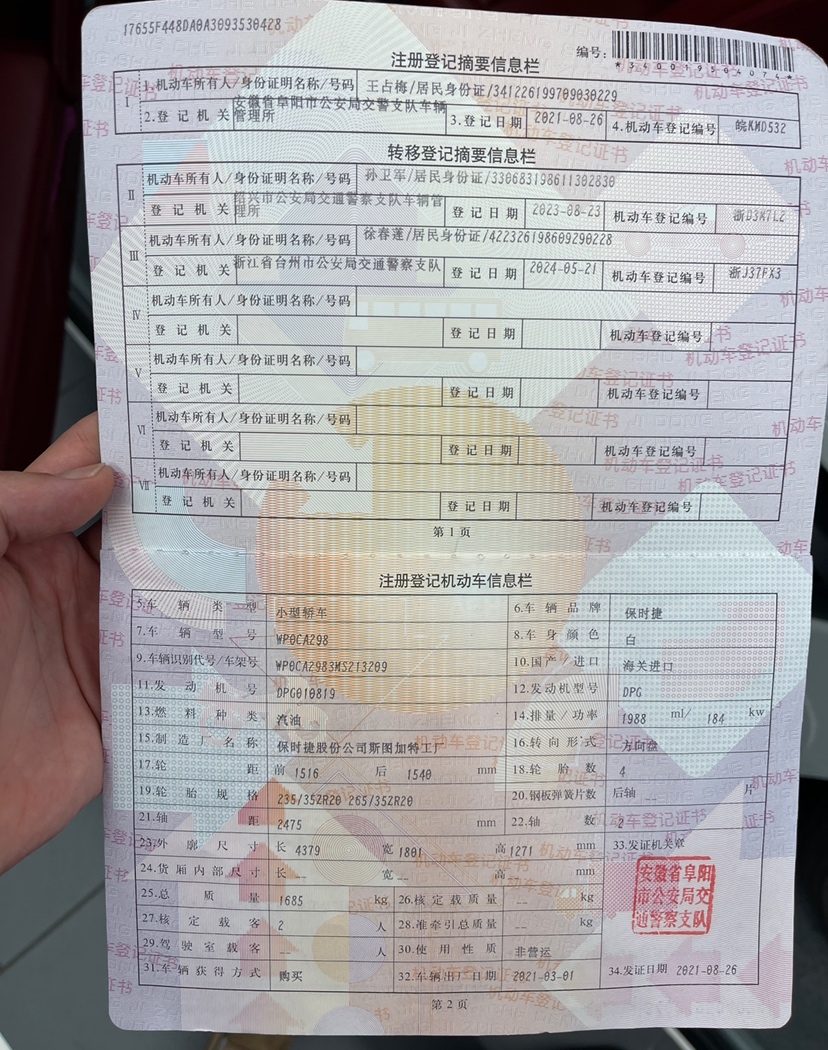 17655F448DA0A3093530428
编号:
*340019504074*
注册登记摘要信息栏
Ⅰ 1.机动车所有人/身份证明名称/号码 王占梅/居民身份证/341226199709030229
2.登记机关 安徽省阜阳市公安局交警支队车辆管理所 3.登记日期 2021-08-26 4.机动车登记编号 皖KMD532
转移登记摘要信息栏
Ⅱ 机动车所有人/身份证明名称/号码 孙卫军/居民身份证/330683198611302830
登记机关 绍兴市公安局交通警察支队车辆管理所 登记日期 2023-08-23 机动车登记编号 浙D3K7L2
Ⅲ 机动车所有人/身份证明名称/号码 徐春莲/居民身份证/422326198609290228
登记机关 浙江省台州市公安局交通警察支队 登记日期 2024-05-21 机动车登记编号 浙J37FX3
Ⅳ 机动车所有人/身份证明名称/号码
登记机关 登记日期 机动车登记编号
Ⅴ 机动车所有人/身份证明名称/号码
登记机关 登记日期 机动车登记编号
Ⅵ 机动车所有人/身份证明名称/号码
登记机关 登记日期 机动车登记编号
Ⅶ 机动车所有人/身份证明名称/号码
登记机关 登记日期 机动车登记编号
第1页
注册登记机动车信息栏
5.车辆类型 小型轿车 6.车辆品牌 保时捷
7.车辆型号 WP0CA298 8.车身颜色 白
9.车辆识别代号/车架号 WP0CA2983MS213209 10.国产/进口 海关进口
11.发动机号 DPG010819 12.发动机型号 DPG
13.燃料种类 汽油 14.排量/功率 1988 ml/ 184 kw
15.制造厂名称 保时捷股份公司斯图加特工厂 16.转向形式 方向盘
17.轮距 前 1516 后 1540 mm 18.轮胎数 4
19.轮胎规格 235/35ZR20 265/35ZR20 20.钢板弹簧片数 后轴 -- 片
21.轴距 2475 mm 22.轴数 2
23.外廓尺寸 长 4379 宽 1801 高 1271 mm 33.发证机关章
24.货厢内部尺寸 长 -- 宽 -- 高 -- mm
安徽省阜阳
市公安局交
通警察支队
25.总质量 1685 kg 26.核定载质量 -- kg
27.核定载客 2 人 28.准牵引总质量 -- kg
29.驾驶室载客 -- 人 30.使用性质 非营运
31.车辆获得方式 购买 32.车辆出厂日期 2021-03-01 34.发证日期 2021-08-26
第2页